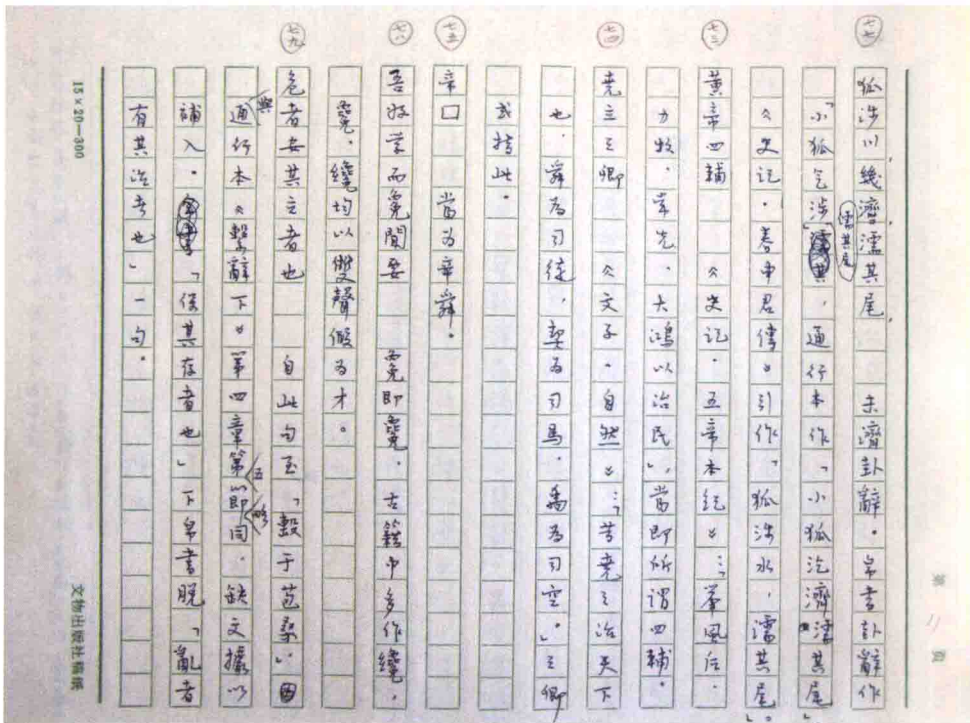 第 11 頁
七七
狐涉川幾濟濡其尾 未濟卦辭。帛書卦辭作
「小狐气涉濡其尾」,通行本作「小狐汔濟濡其尾」。
《史記·春申君傳》引作「狐涉水,濡其尾」。
七三
黃帝四輔 《史記·五帝本紀》:「舉風后、
力牧、常先、大鴻以治民」,當即所謂四輔。
七四
堯立三卿 《文子·自然》:「昔堯之治天下
也,舜為司徒,契為司馬,禹為司空」。三卿
或指此。
七五
帝□ 當為帝舜。
七八
吾好學而毚聞要 毚即纔。古籍中多作纔,
毚、纔均以雙聲假為才。
七九
危者安其立者也 自此句至「毄于苞桑」,
與通行本《繫辭下》第四章第五節略同。缺文據以
補入。「保其存者也」下帛書脫「亂者
有其治者也」一句。
15×20=300
文物出版社稿紙